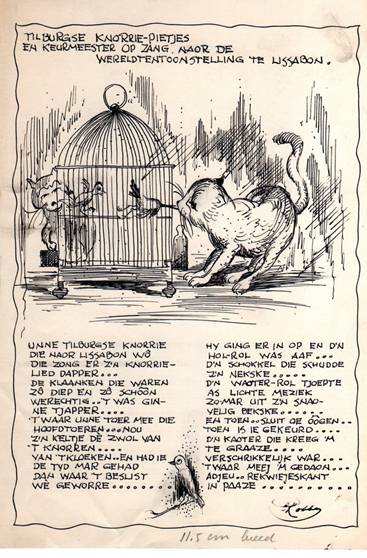 TILBURGSE KNORRIE-PIETJES
EN KEURMEESTER OP ZANG, NAOR DE
WERELDTENTOONSTELLING TE LISSABON.
UNNE TILBURGSE KNORRIE
DIE NAOR LISSABON WÔ
DIE ZONG ER Z'N KNORRIE-
LIED DAPPER....
DE KLAANKEN DIE WAREN
ZÔ DIEP EN ZÔ SCHÔÔN
WERECHTIG..T WAS GIN-
NE TJAPPER....
'T WAAR UNNE TOER MEE DIE
HOOFDTOEREN....NOU
Z'N KELTJE DÈ ZWOL VAN
'T KNORREN....
VAN 'T KLOEKEN..EN HAD IE
DE TYD MAR GEHAD
DAN WAAR 'T BESLIST
WÈ GEWORRE....
HY GING ER IN OP EN D'N
HOL-ROL WAS AAF...
D'N SCHOKKEL DIE SCHUDDE
Z'N NEKSKE.....
D'N WAOTER-ROL TJOEPTE
AS LICHTE MEZIEK
ZOMAR UIT Z'N SNAO-
VELIG BEKSKE.....
EN TOEN..SLUIT DE ÔÔGEN..
TOEN IS IE GEKEURD...
D'N KAOTER DIE KREEG 'M
TE GRAAZE....
VERSCHRIKKELIJK WAR....
'T WAAR MEEJ 'M GEDAON...
ADJEU..REKWIEJESKANT
IN PAAZE.....
Robben
11.5 cm breed